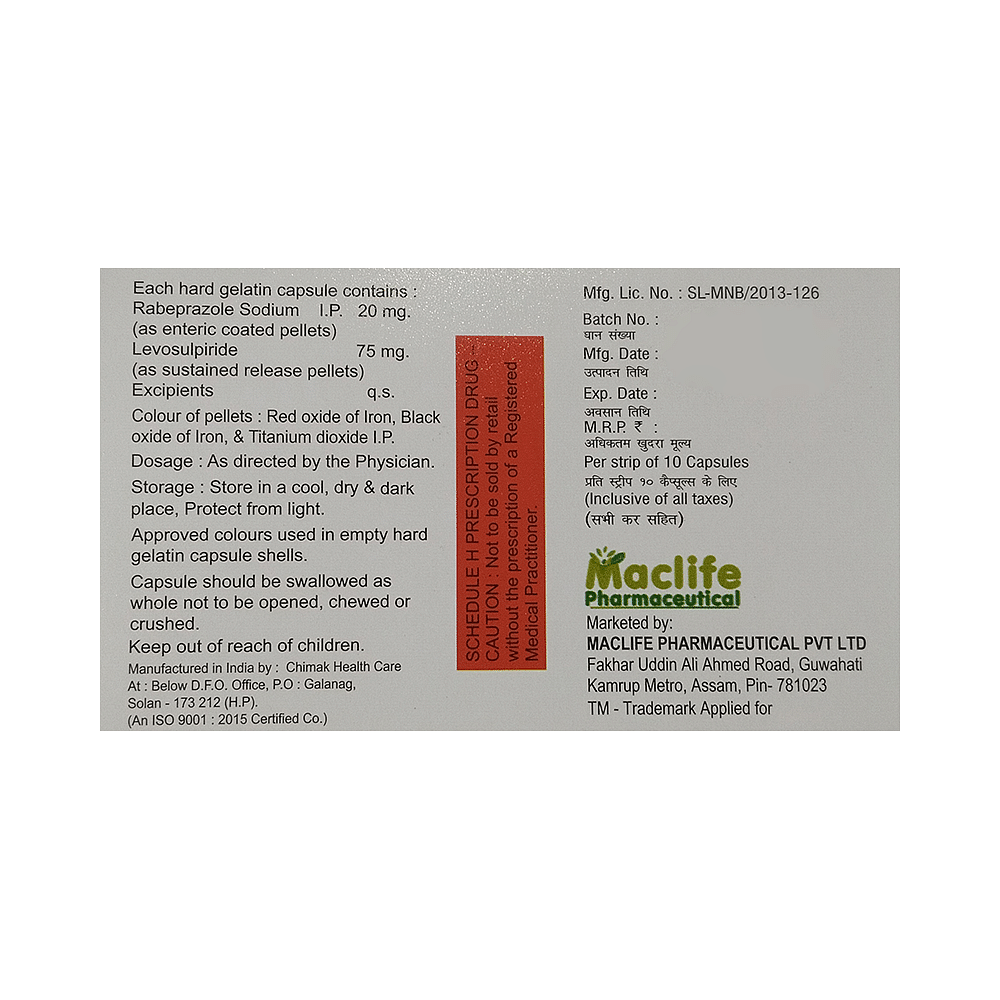 Each hard gelatin capsule contains :
Rabeprazole Sodium I.P. 20 mg.
(as enteric coated pellets)
Levosulpiride 75 mg.
(as sustained release pellets)
Excipients q.s.
Colour of pellets : Red oxide of Iron, Black
oxide of Iron, & Titanium dioxide I.P.
Dosage : As directed by the Physician.
Storage : Store in a cool, dry & dark
place, Protect from light.
Approved colours used in empty hard
gelatin capsule shells.
Capsule should be swallowed as
whole not to be opened, chewed or
crushed.
Keep out of reach of children.
Manufactured in India by : Chimak Health Care
At : Below D.F.O. Office, P.O : Galanag,
Solan - 173 212 (H.P).
(An ISO 9001 : 2015 Certified Co.)
SCHEDULE H PRESCRIPTION DRUG –
CAUTION : Not to be sold by retail
without the prescription of a Registered
Medical Practitioner.
Mfg. Lic. No. : SL-MNB/2013-126
Batch No. :
घान संख्या
Mfg. Date :
उत्पादन तिथि
Exp. Date :
अवसान तिथि
M.R.P. ₹ :
अधिकतम खुदरा मूल्य
Per strip of 10 Capsules
प्रति स्ट्रीप १० कैप्सूल्स के लिए
(Inclusive of all taxes)
(सभी कर सहित)
Maclife
Pharmaceutical
Marketed by:
MACLIFE PHARMACEUTICAL PVT LTD
Fakhar Uddin Ali Ahmed Road, Guwahati
Kamrup Metro, Assam, Pin- 781023
TM - Trademark Applied for